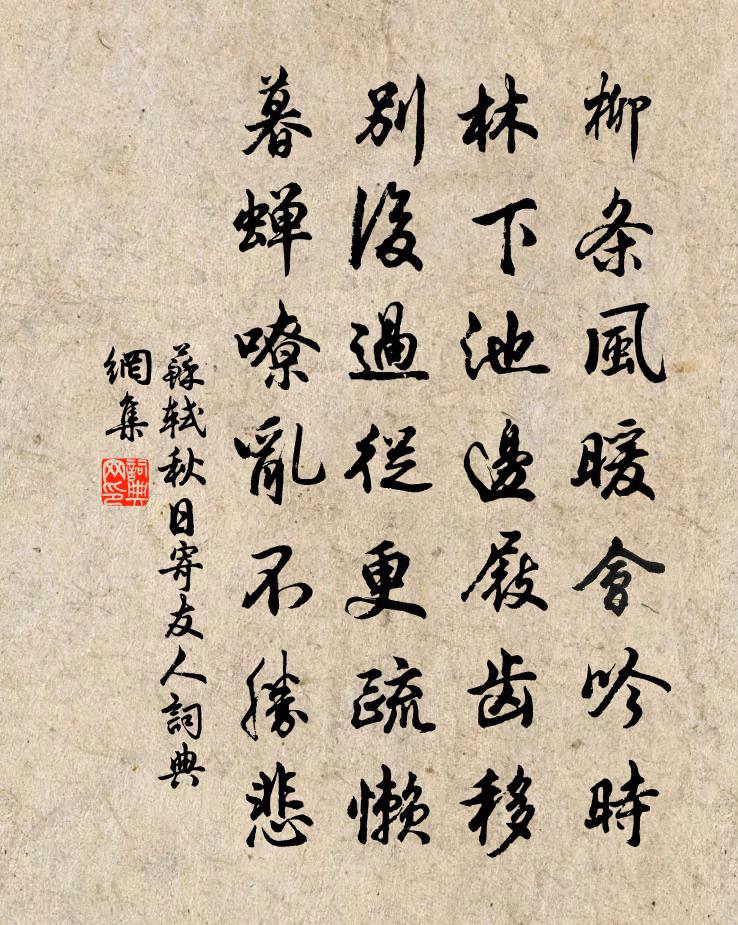 柳条風暖會吟時
林下池邊屐齿移
別後過從更疏懒
暮蝉嘹亂不勝悲
蘇轼秋日寄友人詞典
網集
詞典
网印